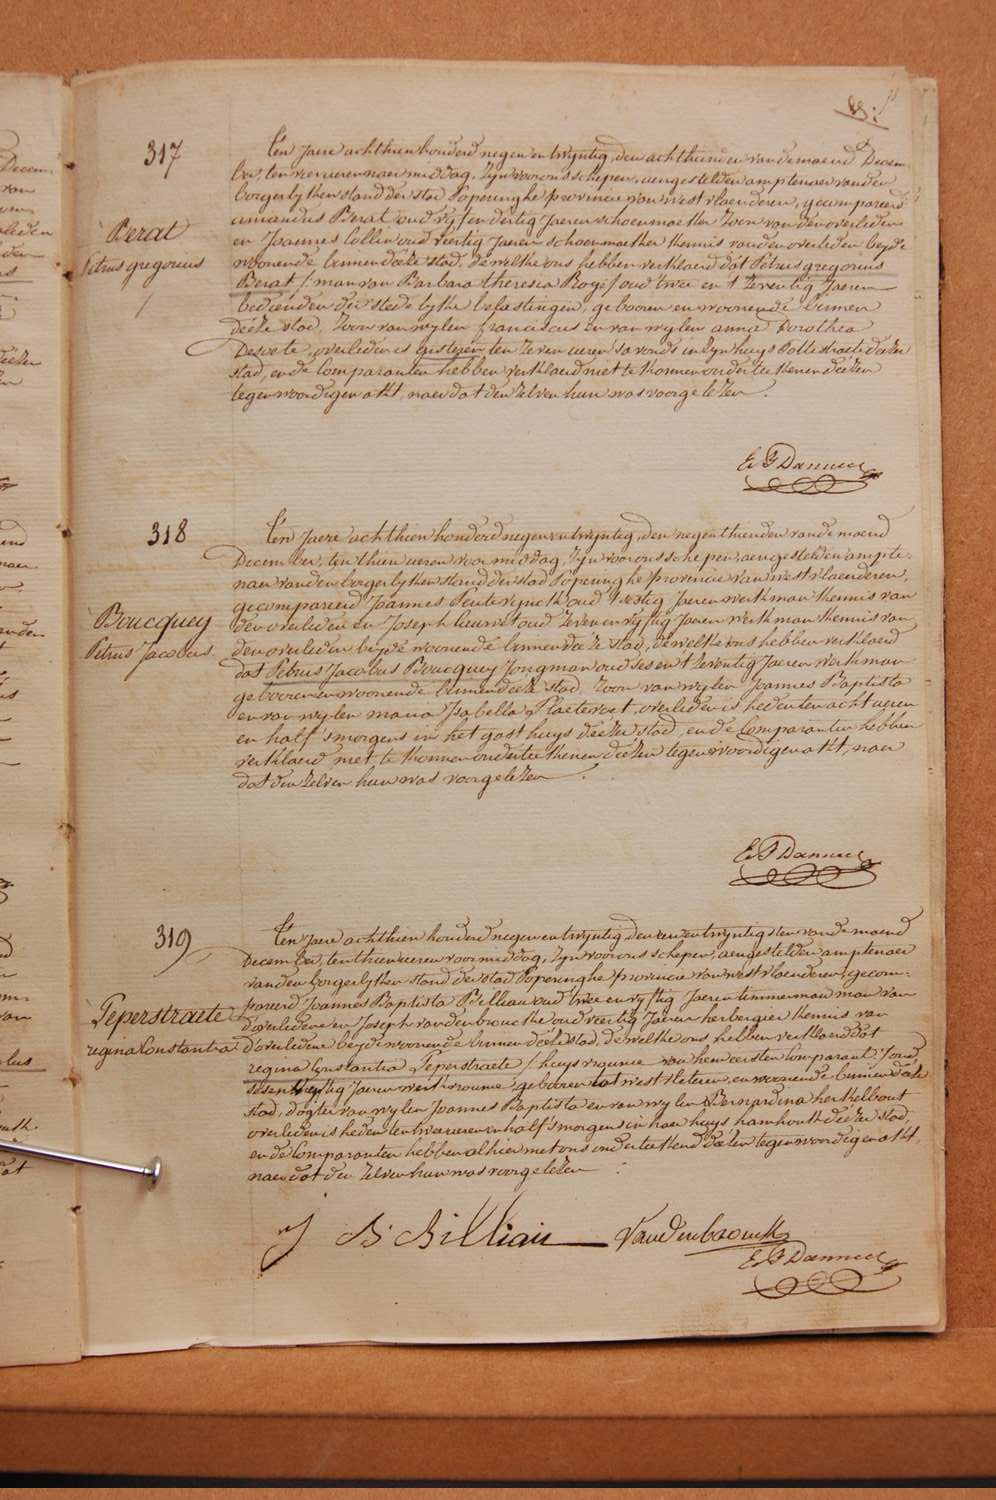 317
Berat
Petrus gregorius
Ten Jaere achthien honderd negen en twyntig, den achthienden van de maend Decem-
ber, ten vier ueren naer middag, Zyn voor ons schepen, aengestelden amptenaer van den
borgerlyken stand der stad Poperinghe provincie van westvlaenderen, gecompareerd
amandus Berat oud vyf en dertig Jaeren schoenmaeker Zoon van den overleden
en Joannes Collin oud veertig Jaeren schoenmaeker kennis van den overleden beyde
woonende binnen deéze stad, de welke ons hebben verklaerd dat Petrus gregorius
Berat / man van Barbara theresia Roge / oud twee en t'zeventig Jaeren
bedienden der stedelyke belastingen, gebooren en woonende binnen
deéze stad, Zoon van wylen franciscus en van wylen anna Dorothea
Desoete, overleden is gisteren ten zeven ueren s'avonds in Zyn huys Pottestraete deézer
stad, en de Comparanten hebben verklaerd niet te konnen onderteekenen deézen
tegenwoordigen akt, naer dat den zelven hun was voorgelezen.
318
Boucquey
Petrus Jacobus
Ten Jaere achthien honderd negen en twyntig, den negenthienden van de maend
December, ten thien ueren voor middag, Zyn voor ons schepen, aengestelden ampte-
naer van den borgerlyken stand der stad Poperinghe provincie van westvlaenderen,
gecompareerd Joannes Penterynck oud t'sestig Jaeren werkman kennis van
den overleden en Joseph Lauwet oud zeven en vyftig Jaeren werkman kennis van
den overleden beyde woonende binnen deéze stad, de welke ons hebben verklaerd
dat Petrus Jacobus Boucquey Jongman oud ses en t'zeventig Jaeren werkman
gebooren en woonende binnen deéze stad, Zoon van wylen Joannes Baptista
en van wylen maria Isabella Plaetevoet, overleden is heden ten acht ueren
en half s'morgens in het gasthuys deézer stad, en de Comparanten hebben
verklaerd niet te konnen onderteekenen deézen tegenwoordigen akt, naer
dat den zelven hun was voorgelezen.
319
Leperstraete
regina Constantia
Ten Jaere achthien honderd negen en twyntig, den een en twyntigsten van de maend
December, ten thien ueren voor middag, Zyn voor ons schepen, aengestelden amptenaer
van den borgerlyken stand der stad Poperinghe provincie van westvlaenderen, gecom-
pareerd Joannes Baptista Billiau oud twee en vyftig Jaeren timmerman man van
d'overledene en Joseph vandenbroucke oud veertig Jaeren herbergier kennis van
d'overledene beyde woonende binnen deéze stad, de welke ons hebben verklaerd dat
regina Constantia Leperstraete / huysvrouwe van hem eersten Comparant / oud
sesen Jaeren werkvrouwe, gebooren tot westvleteren, en woonende binnen deéze
stad, dogter van wylen Joannes Baptista en van wylen Bernardina herkelbout
overleden is heden ten twee ueren en half s'morgens in haer huys hamhoek deézer stad,
en de Comparanten hebben alhier met ons onderteekend deézen tegenwoordigen akt,
naer dat den zelven hun was voorgelezen.
J B Billiau Vandenbroucke